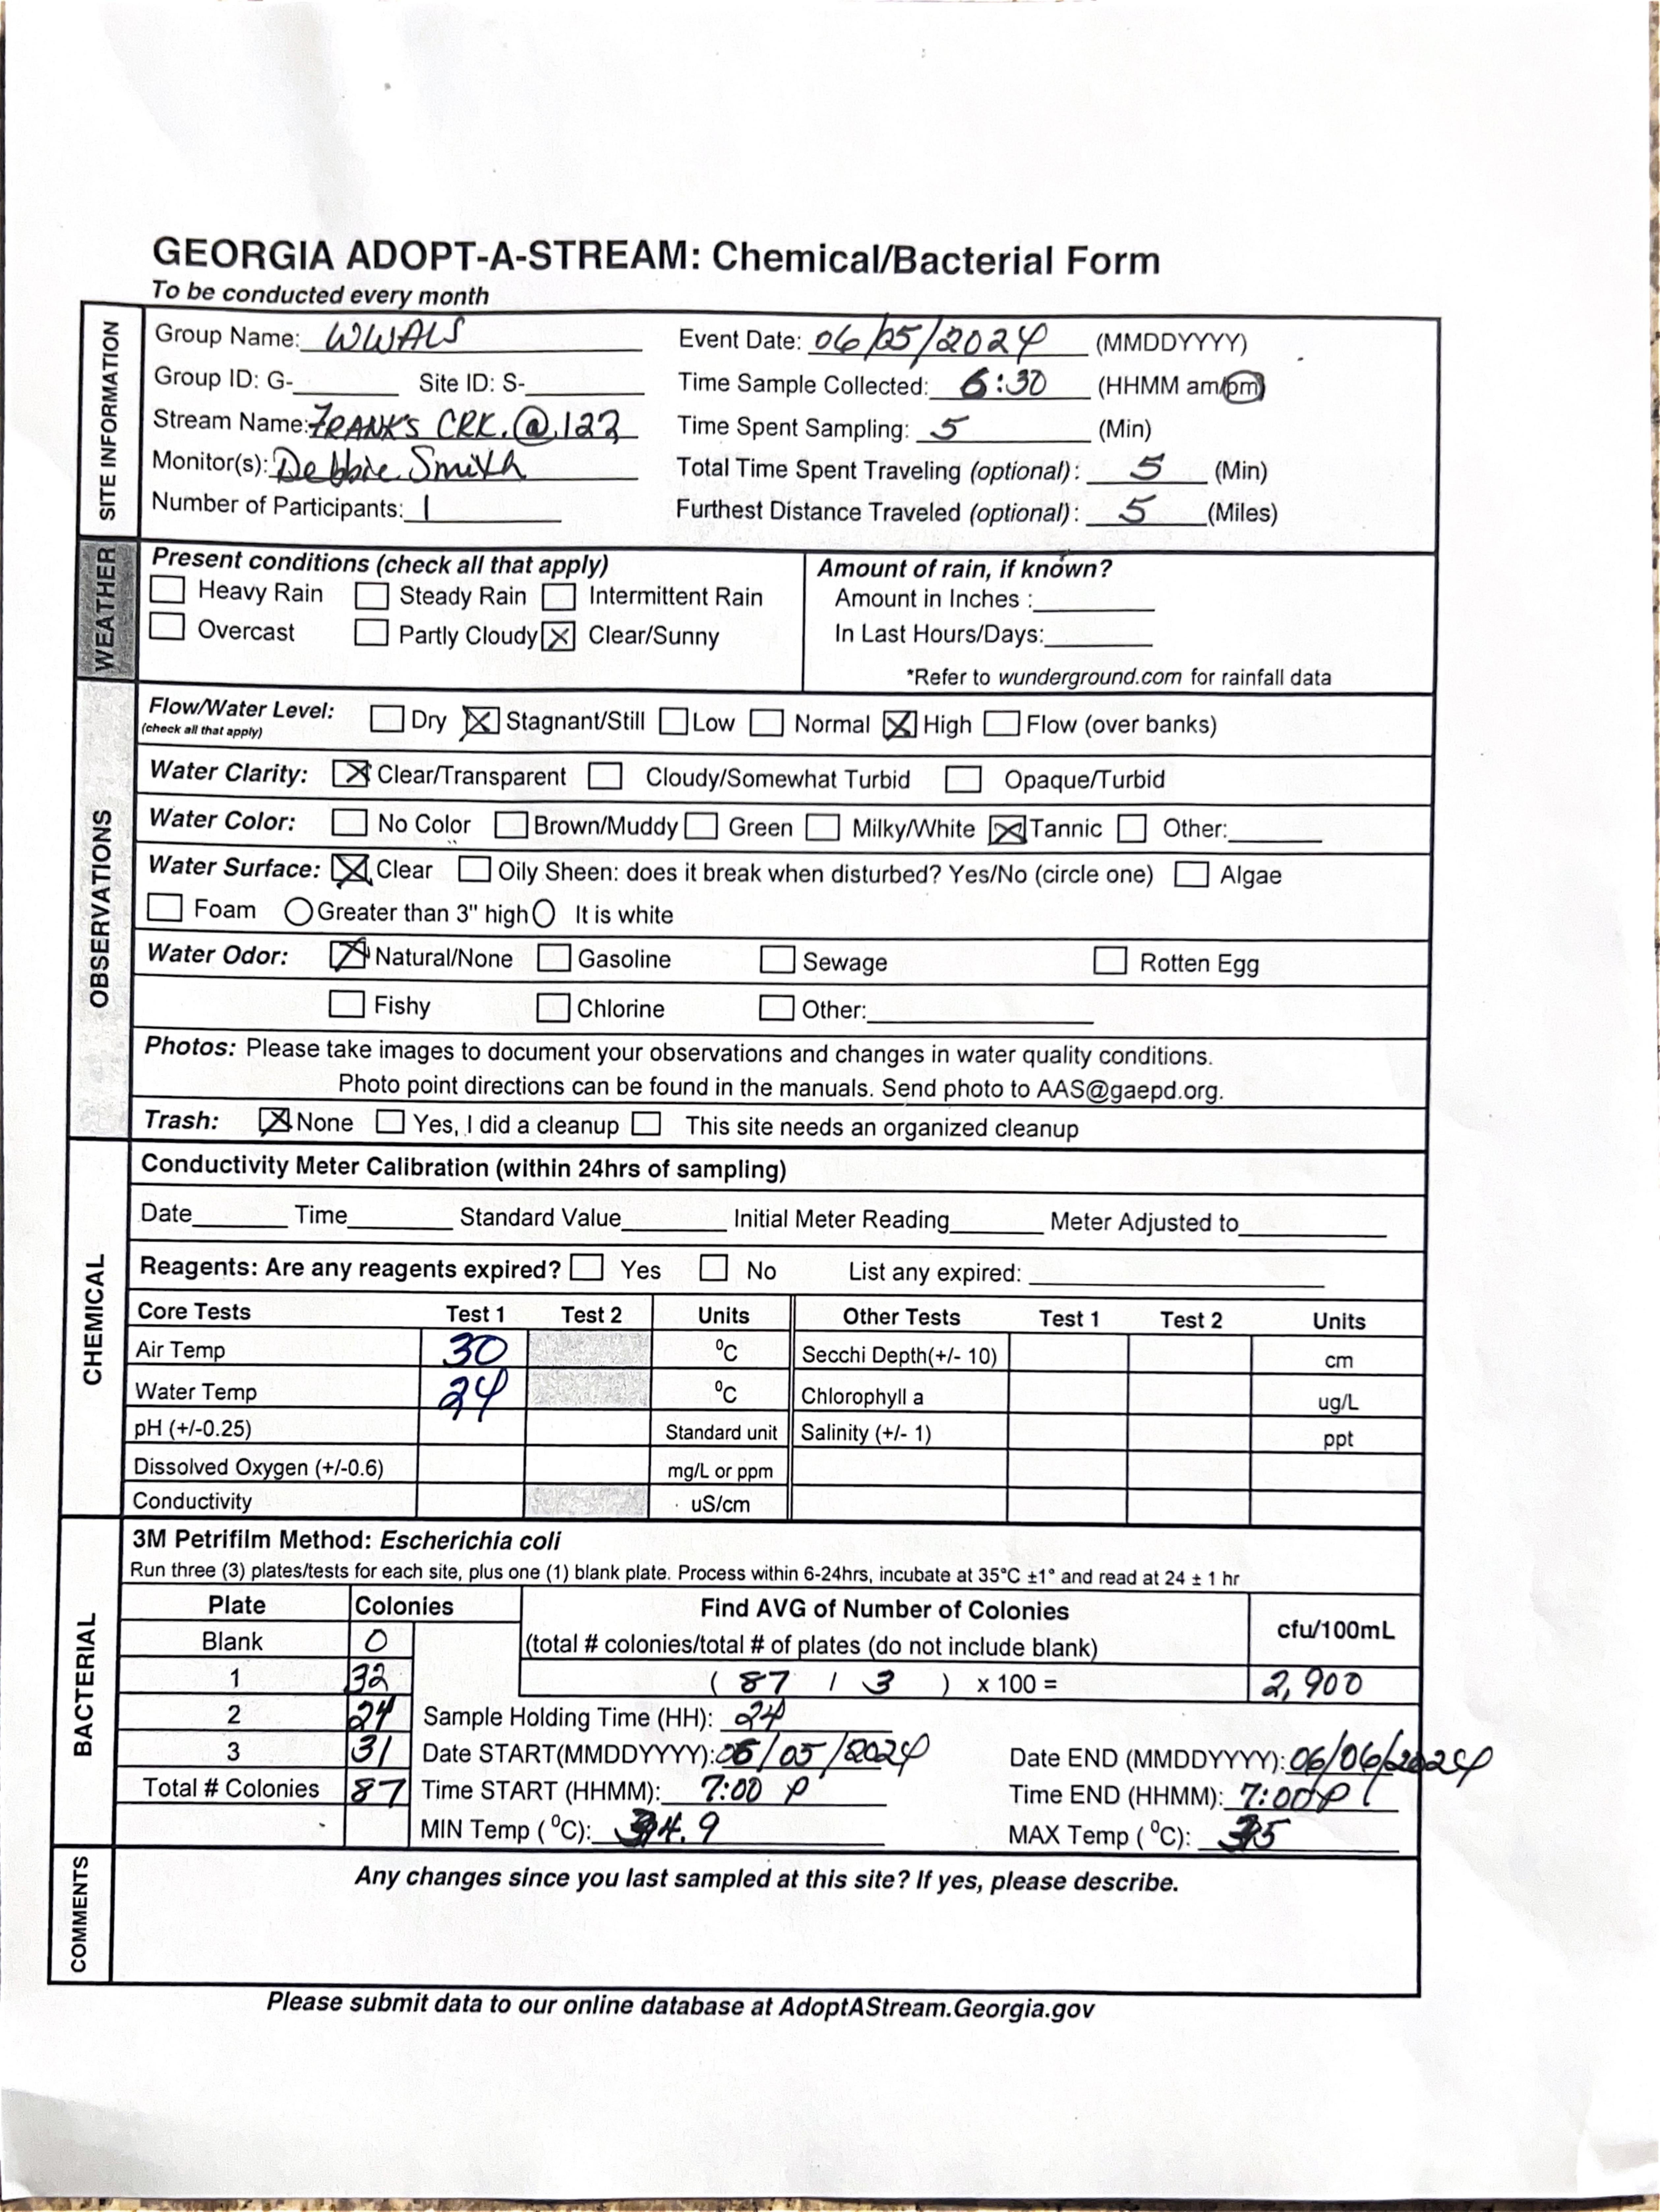 GEORGIA ADOPT-A-STREAM: Chemical/Bacterial Form
To be conducted every month
SITE INFORMATION
Group Name: WWALS Event Date: 06/05/2024 (MMDDYYYY)
Group ID: G-______ Site ID: S-______ Time Sample Collected: 6:30 (HHMM am/pm)
Stream Name: FRANK'S CRK. @ 122 Time Spent Sampling: 5 (Min)
Monitor(s): Debbie Smith Total Time Spent Traveling (optional): 5 (Min)
Number of Participants: 1 Furthest Distance Traveled (optional): 5 (Miles)
WEATHER
Present conditions (check all that apply) Amount of rain, if known?
☐ Heavy Rain ☐ Steady Rain ☐ Intermittent Rain Amount in Inches :______
☐ Overcast ☐ Partly Cloudy ☒ Clear/Sunny In Last Hours/Days:______
*Refer to wunderground.com for rainfall data
OBSERVATIONS
Flow/Water Level: ☐ Dry ☒ Stagnant/Still ☐ Low ☐ Normal ☒ High ☐ Flow (over banks)
(check all that apply)
Water Clarity: ☒ Clear/Transparent ☐ Cloudy/Somewhat Turbid ☐ Opaque/Turbid
Water Color: ☐ No Color ☐ Brown/Muddy ☐ Green ☐ Milky/White ☒ Tannic ☐ Other:______
Water Surface: ☒ Clear ☐ Oily Sheen: does it break when disturbed? Yes/No (circle one) ☐ Algae
☐ Foam ○ Greater than 3" high ○ It is white
Water Odor: ☒ Natural/None ☐ Gasoline ☐ Sewage ☐ Rotten Egg
☐ Fishy ☐ Chlorine ☐ Other:______
Photos: Please take images to document your observations and changes in water quality conditions.
Photo point directions can be found in the manuals. Send photo to AAS@gaepd.org.
Trash: ☒ None ☐ Yes, I did a cleanup ☐ This site needs an organized cleanup
CHEMICAL
Conductivity Meter Calibration (within 24hrs of sampling)
Date______ Time______ Standard Value______ Initial Meter Reading______ Meter Adjusted to______
Reagents: Are any reagents expired? ☐ Yes ☐ No List any expired: ______
Core Tests Test 1 Test 2 Units Other Tests Test 1 Test 2 Units
Air Temp 30 ⁰C Secchi Depth(+/- 10) cm
Water Temp 24 ⁰C Chlorophyll a ug/L
pH (+/-0.25) Standard unit Salinity (+/- 1) ppt
Dissolved Oxygen (+/-0.6) mg/L or ppm
Conductivity uS/cm
BACTERIAL
3M Petrifilm Method: Escherichia coli
Run three (3) plates/tests for each site, plus one (1) blank plate. Process within 6-24hrs, incubate at 35°C ±1° and read at 24 ± 1 hr
Plate Colonies Find AVG of Number of Colonies cfu/100mL
Blank 0 (total # colonies/total # of plates (do not include blank)
1 32 ( 87 / 3 ) x 100 = 2,900
2 24 Sample Holding Time (HH): 24
3 31 Date START(MMDDYYYY): 06/05/2024 Date END (MMDDYYYY): 06/06/2024
Total # Colonies 87 Time START (HHMM): 7:00 P Time END (HHMM): 7:00P
MIN Temp (⁰C): 34.9 MAX Temp (⁰C): 35
COMMENTS
Any changes since you last sampled at this site? If yes, please describe.
Please submit data to our online database at AdoptAStream.Georgia.gov